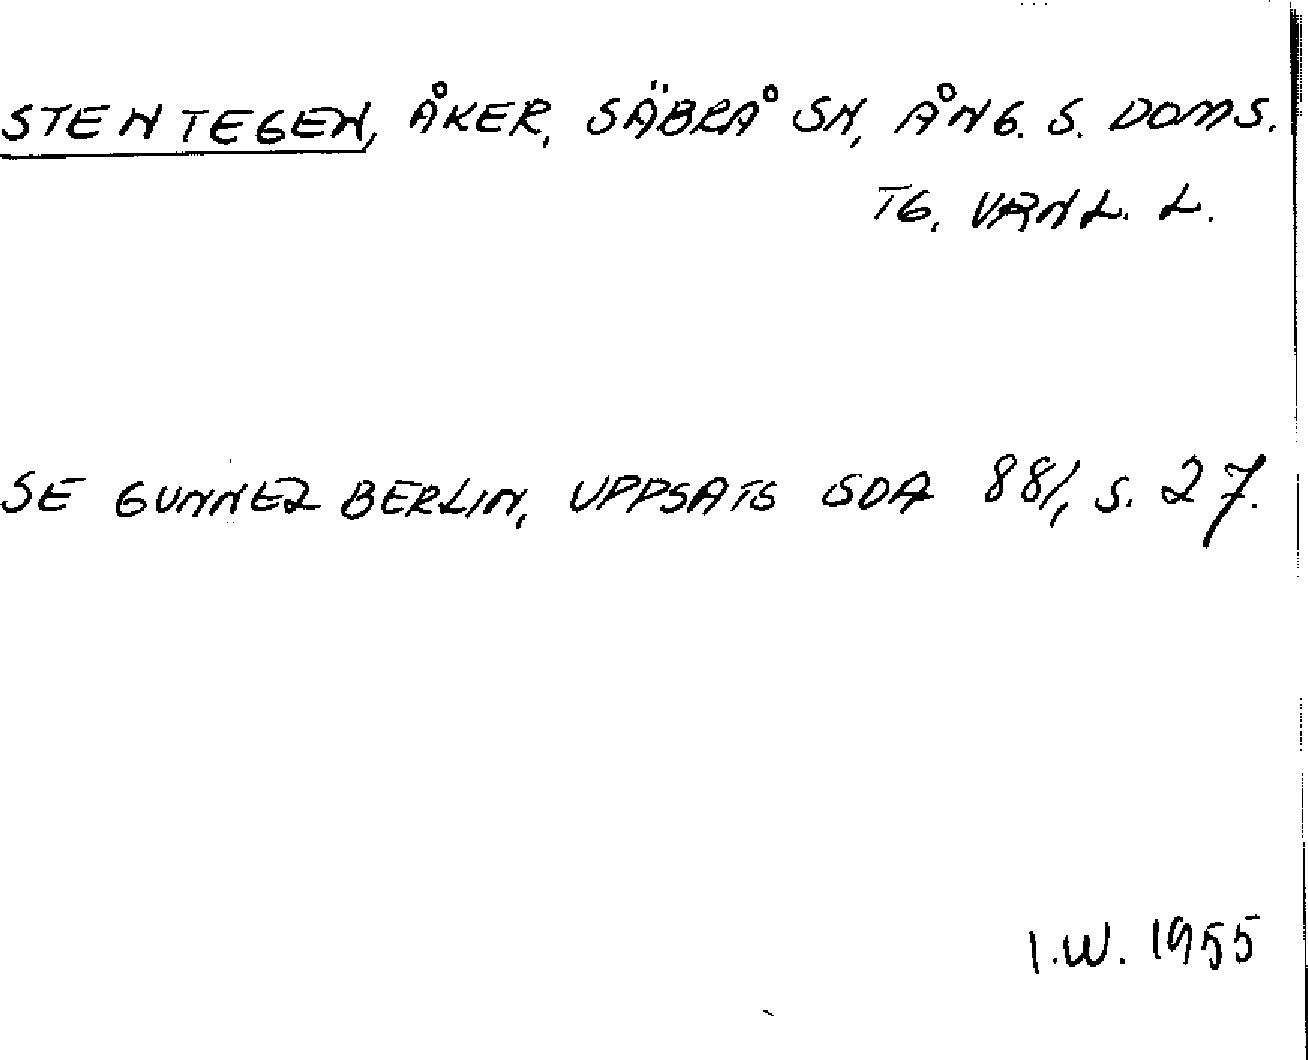 STENTEGEN, ÅKER, SÄBRÅ SN, ÅNG. S. DOMS.
TG, VRNL. L.
SE GUNNEL BERLIN, UPPSATS SDA 881, S. 27.
I.W. 1955